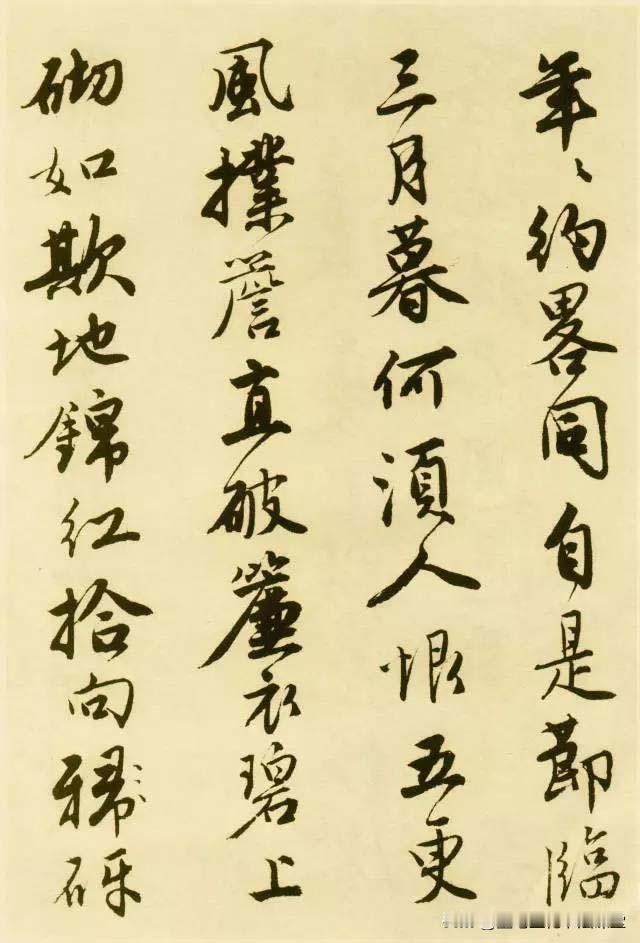 年々約畧同自是節臨
三月暮何須人恨五更
風撲簷直破簾衣碧上
砌如欺地錦紅拾向砑